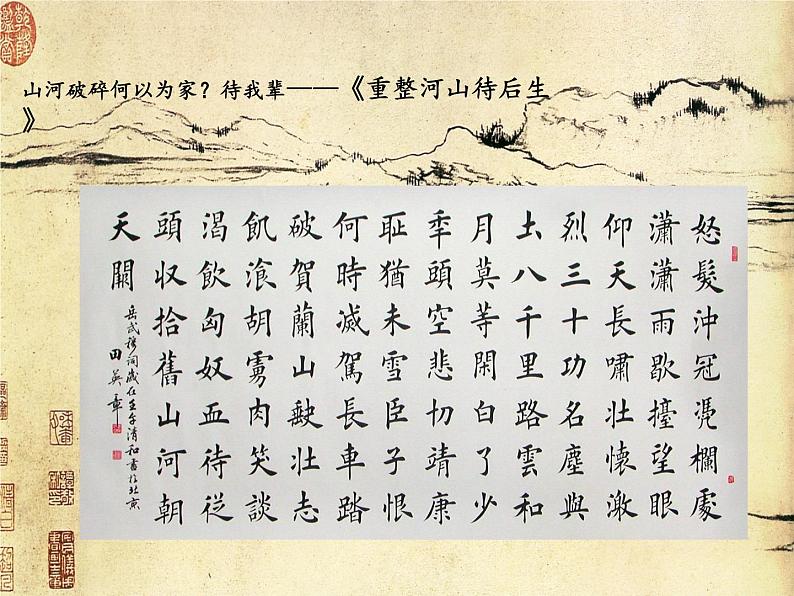 山河破碎何以为家？待我辈——《重整河山待后生
》
怒髮沖冠凴欄處
瀟瀟雨歇擡望眼
仰天長嘯壯懷激
烈三十功名塵與
土八千里路雲和
月莫等閑白了少
秊頭空悲切靖康
耻猶未雪臣子恨
何時滅駕長車踏
破賀蘭山缺壯志
飢飡胡虜肉笑談
渴飲匈奴血待從
頭収拾舊山河朝
天闕
岳武穆詞歲在壬午清和書於北京
田英章